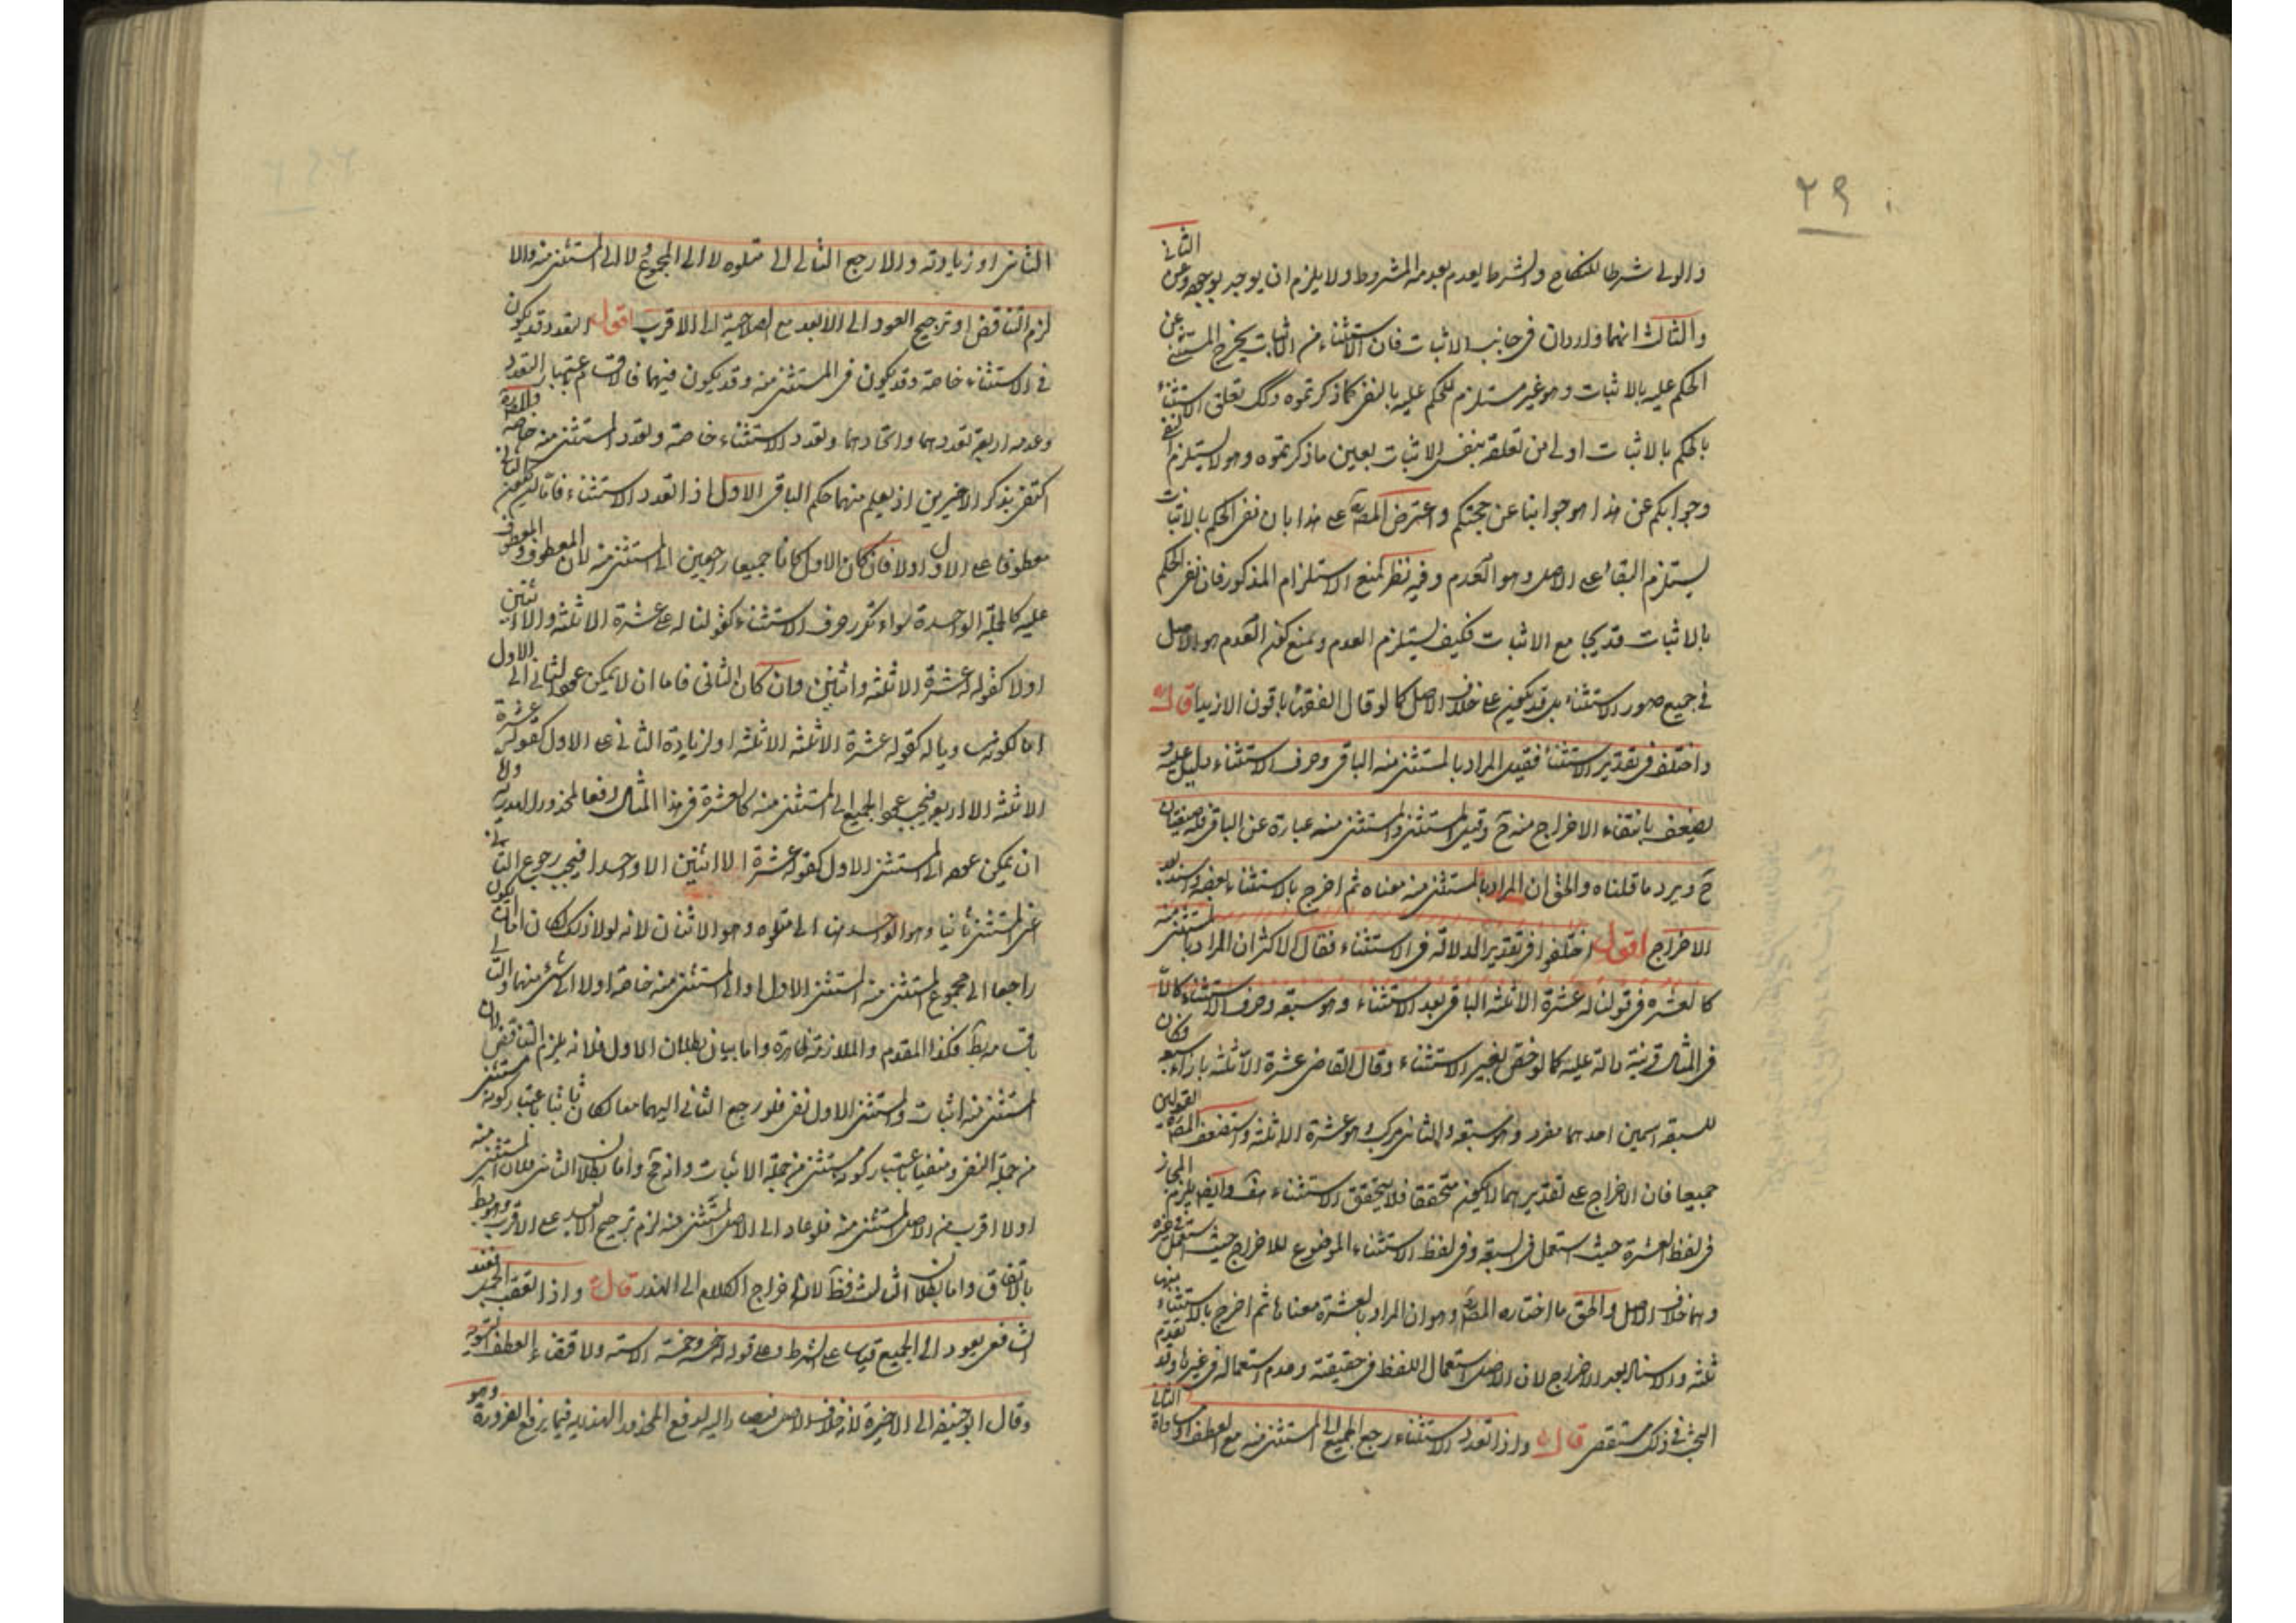 ٢٩
والولى شرطا للنكاح والشرط يعدم بعدمه المشروط ولا يلزم ان يوجد بوجوده وعن الثانى
والثالث انهما واردان فى جانب الاثبات فان الاستثناء من الاثبات يخرج المستثنى عن
الحكم عليه بالاثبات وهو غير مستلزم للحكم عليه بالنفى كما ذكرتموه وكك تعلق الاستثناء
بالحكم بالاثبات اولى من تعلقه بنفس الاثبات بعين ما ذكرتموه وهو لا يستلزم النفى
وجوابكم عن هذا هو جوابنا عن حجتكم واعترض المصـ على هذا بان نفى الحكم بالاثبات
يستلزم البقاء على الاصل وهو العدم وفيه نظر لمنع الاستلزام المذكور فان نفى الحكم
بالاثبات قد يجامع الاثبات فكيف يستلزم العدم ونمنع كون العدم هو الاصل
فى جميع صور الاستثناء بل قد يكون على خلاف الاصل كما لو قال الفقهاء باقون الا زيدا قال
واختلف فى تقدير الاستثناء فقيل المراد بالمستثنى منه الباقى وحرف الاستثناء دليل عليه و
يضعف بانتفاء الاخراج منه ح وقيل المستثنى والمستثنى منه عبارة عن الباقى فله صيغتان
ح ويرد ما قلناه والحق ان المراد بالمستثنى منه معناه ثم اخرج بالاستثناء بعضه واسند بعد
الاخراج اقول اختلفوا فى تقدير الدلالة فى الاستثناء فقال الاكثر ان المراد بالمستثنى منه
كالعشرة فى قولنا له عشرة الا ثلثة الباقى بعد الاستثناء وهو سبعة وحرف الاستثناء كالا
فى المثال قرينة دالة عليه كما لو خص بغير الاستثناء وقال القاضى عشرة الا ثلثة بازاء سبعة فكان
للسبعة اسمين احدهما مفرد وهو سبعة والثانى مركب وهو عشرة الا ثلثة واستضعف المصـ القولين
جميعا فان الاخراج على تقديرهما لا يكون متحققا فلا يتحقق الاستثناء هف وايضا يلزم المجاز
فى لفظ العشرة حيث استعمل فى السبعة وفى لفظ الاستثناء الموضوع للاخراج حيث استعمل فى غيره
وهما خلاف الاصل والحق ما اختاره المصـ وهو ان المراد بالعشرة معناها ثم اخرج بالاستثناء منها
ثلثة والاسناد بعد الاخراج لان الاصل استعمال اللفظ فى حقيقته وعدم استعماله فى غيرها وقد تقدم
البحث فى ذلك مستقصى قال واذا تعدد الاستثناء رجع الجميع الى المستثنى منه مع العطف او مساواة الثانى
الثانى او زيادته والا رجع التالى الى متلوه لا الى المجموع ولا الى المستثنى منه والا
لزم التناقض او ترجيح العود الى الابعد مع صلاحية الاقرب اقول التعدد قد يكون
فى الاستثناء خاصة وقد يكون فى المستثنى منه وقد يكون فيهما فالاقسام باعتبار التعدد
وعدمه اربعة تعددهما واتحادهما وتعدد الاستثناء خاصة وتعدد المستثنى منه خاصة والمصـ
اكتفى بذكر الاخيرين اذ يعلم منهما حكم الباقى الاول اذا تعدد الاستثناء فاما ان يكون الثانى
معطوفا على الاول اولا فان كان الاول كانا جميعا راجعين الى المستثنى منه لان المعطوف والمعطوف
عليه كالجملة الواحدة سواء تكرر حرف الاستثناء كقولنا له على عشرة الا ثلثة والا اثنين
اولا كقوله له عشرة الا ثلثة واثنين وان كان الثانى فاما ان لا يمكن عود الثانى الى الاول
اما لكونه مساويا له كقوله عشرة الا ثلثة الا ثلثة او لزيادة الثانى على الاول كقوله عشرة
الا ثلثة الا اربعة فيجب عود الجميع الى المستثنى منه كالعشرة فى هذا المثال دفعا لمحذور الهذرية والا
ان يمكن عوده الى المستثنى الاول كقوله عشرة الا اثنين الا واحدا فيجب رجوع الثانى
اعنى المستثنى ثانيا وهو الواحد هنا الى متلوه وهو الاثنان لانه لولا ذلك لكان اما ان يكون
راجعا الى مجموع المستثنى منه والمستثنى الاول او الى المستثنى منه خاصة اولا الى شئ منهما والتالى
باقسامه بط فكذا المقدم والملازمة ظاهرة واما بيان بطلان الاول فلانه يلزم التناقض لان
المستثنى منه اثبات والمستثنى الاول نفى فلو رجع الثانى اليهما معا لكان ثابتا باعتبار كونه مستثنى
من جملة النفى ومنفيا باعتبار كونه مستثنى من جملة الاثبات وانه مح واما بطلان الثانى فلان المستثنى منه
اولا اقرب من الاصل المستثنى منه فلو عاد الى الاصل المستثنى منه لزم ترجيح الابعد على الاقرب وهو بط
بالاتفاق واما بطلان الثالث فظ لان اخراج الكلام الى الهذر قال واذا تعقب الجمل فعند
الشافعى يعود الى الجميع قياسا على الشرط وعلى قوله له خمسة وخمسة الا ستة ولاقتضاء العطف التسوية
وقال ابو حنيفة الى الاخيرة لانه خلاف الاصل فيصار اليه لدفع المحذور الهذرية فيما يرفع الضرورة وهو